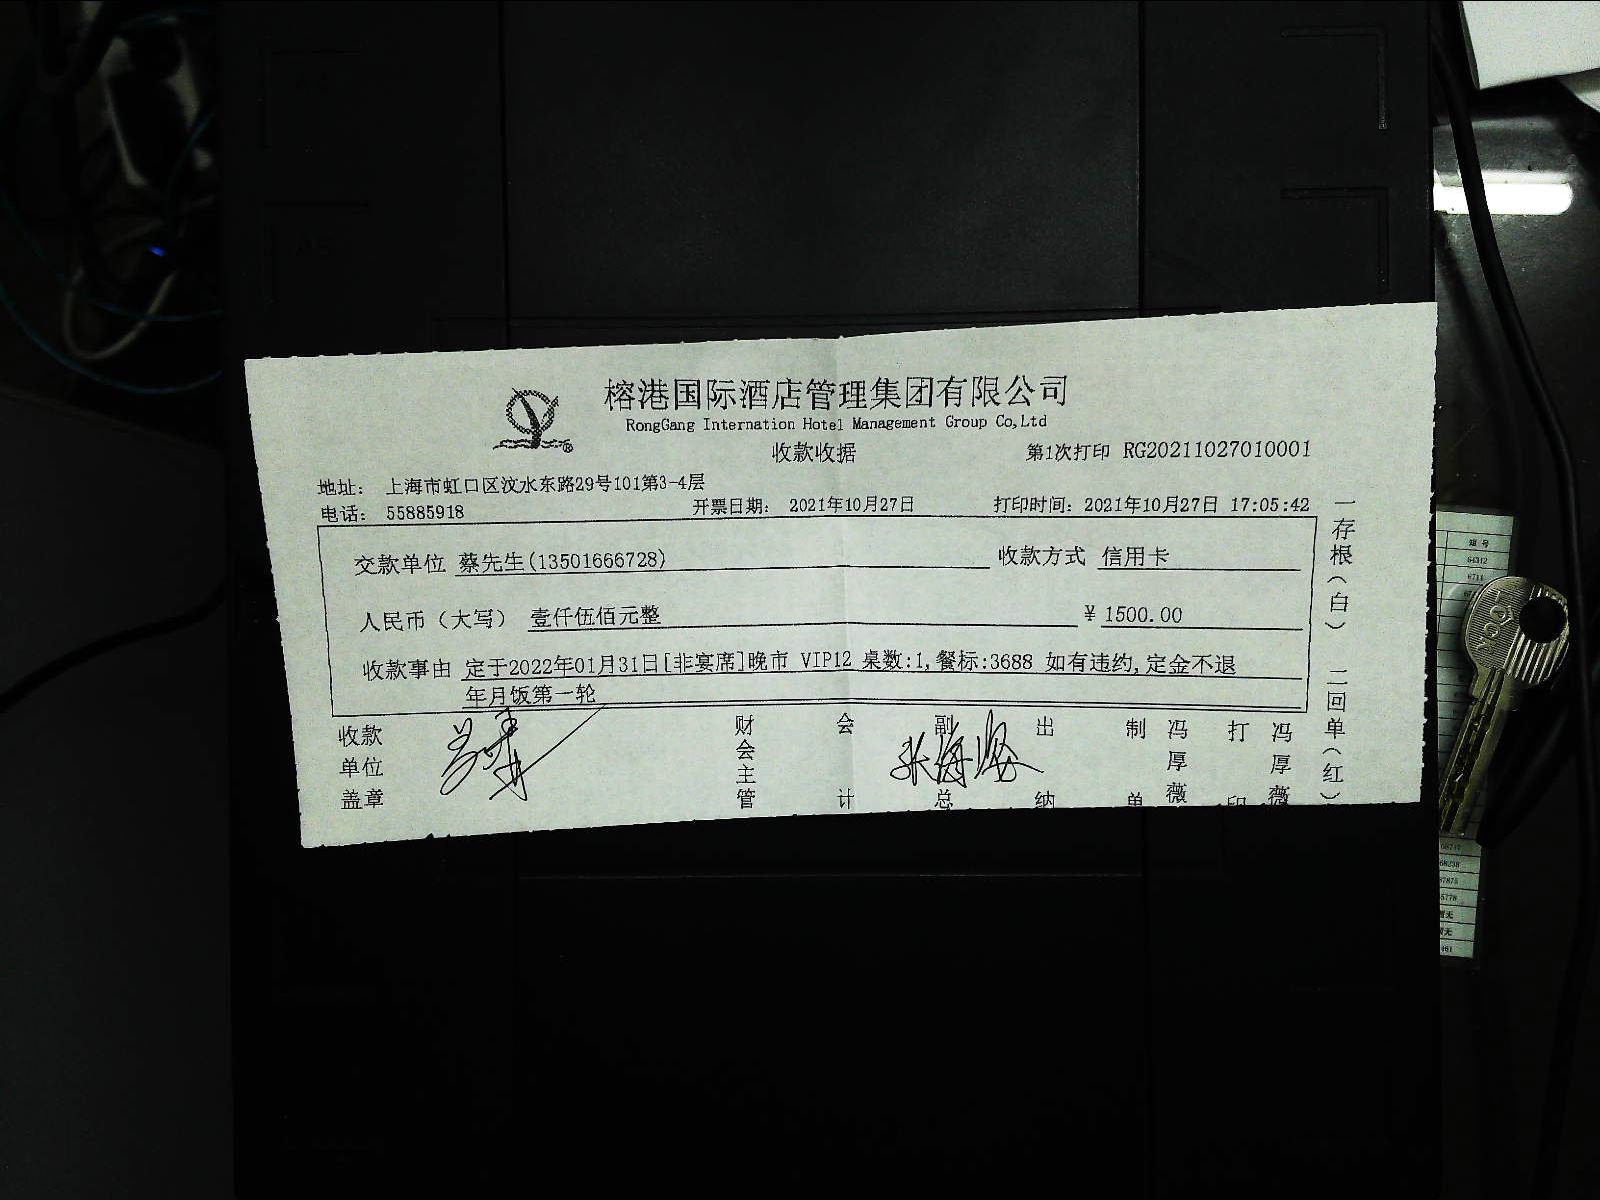 榕港国际酒店管理集团有限公司
RongGang Internation Hotel Management Group Co,Ltd
收款收据
第1次打印 RG20211027010001
地址： 上海市虹口区汶水东路29号101第3-4层
电话： 55885918
开票日期： 2021年10月27日
打印时间：2021年10月27日 17:05:42
交款单位 蔡先生(13501666728)
收款方式 信用卡
人民币（大写） 壹仟伍佰元整
¥ 1500.00
收款事由 定于2022年01月31日[非宴席]晚市 VIP12 桌数:1,餐标:3688 如有违约,定金不退
年月饭第一轮
收款单位盖章
财会主管
会计
副总
张海燕
出纳
制单
冯厚薇
打印
冯厚薇
一存根（白） 二回单（红）
A5